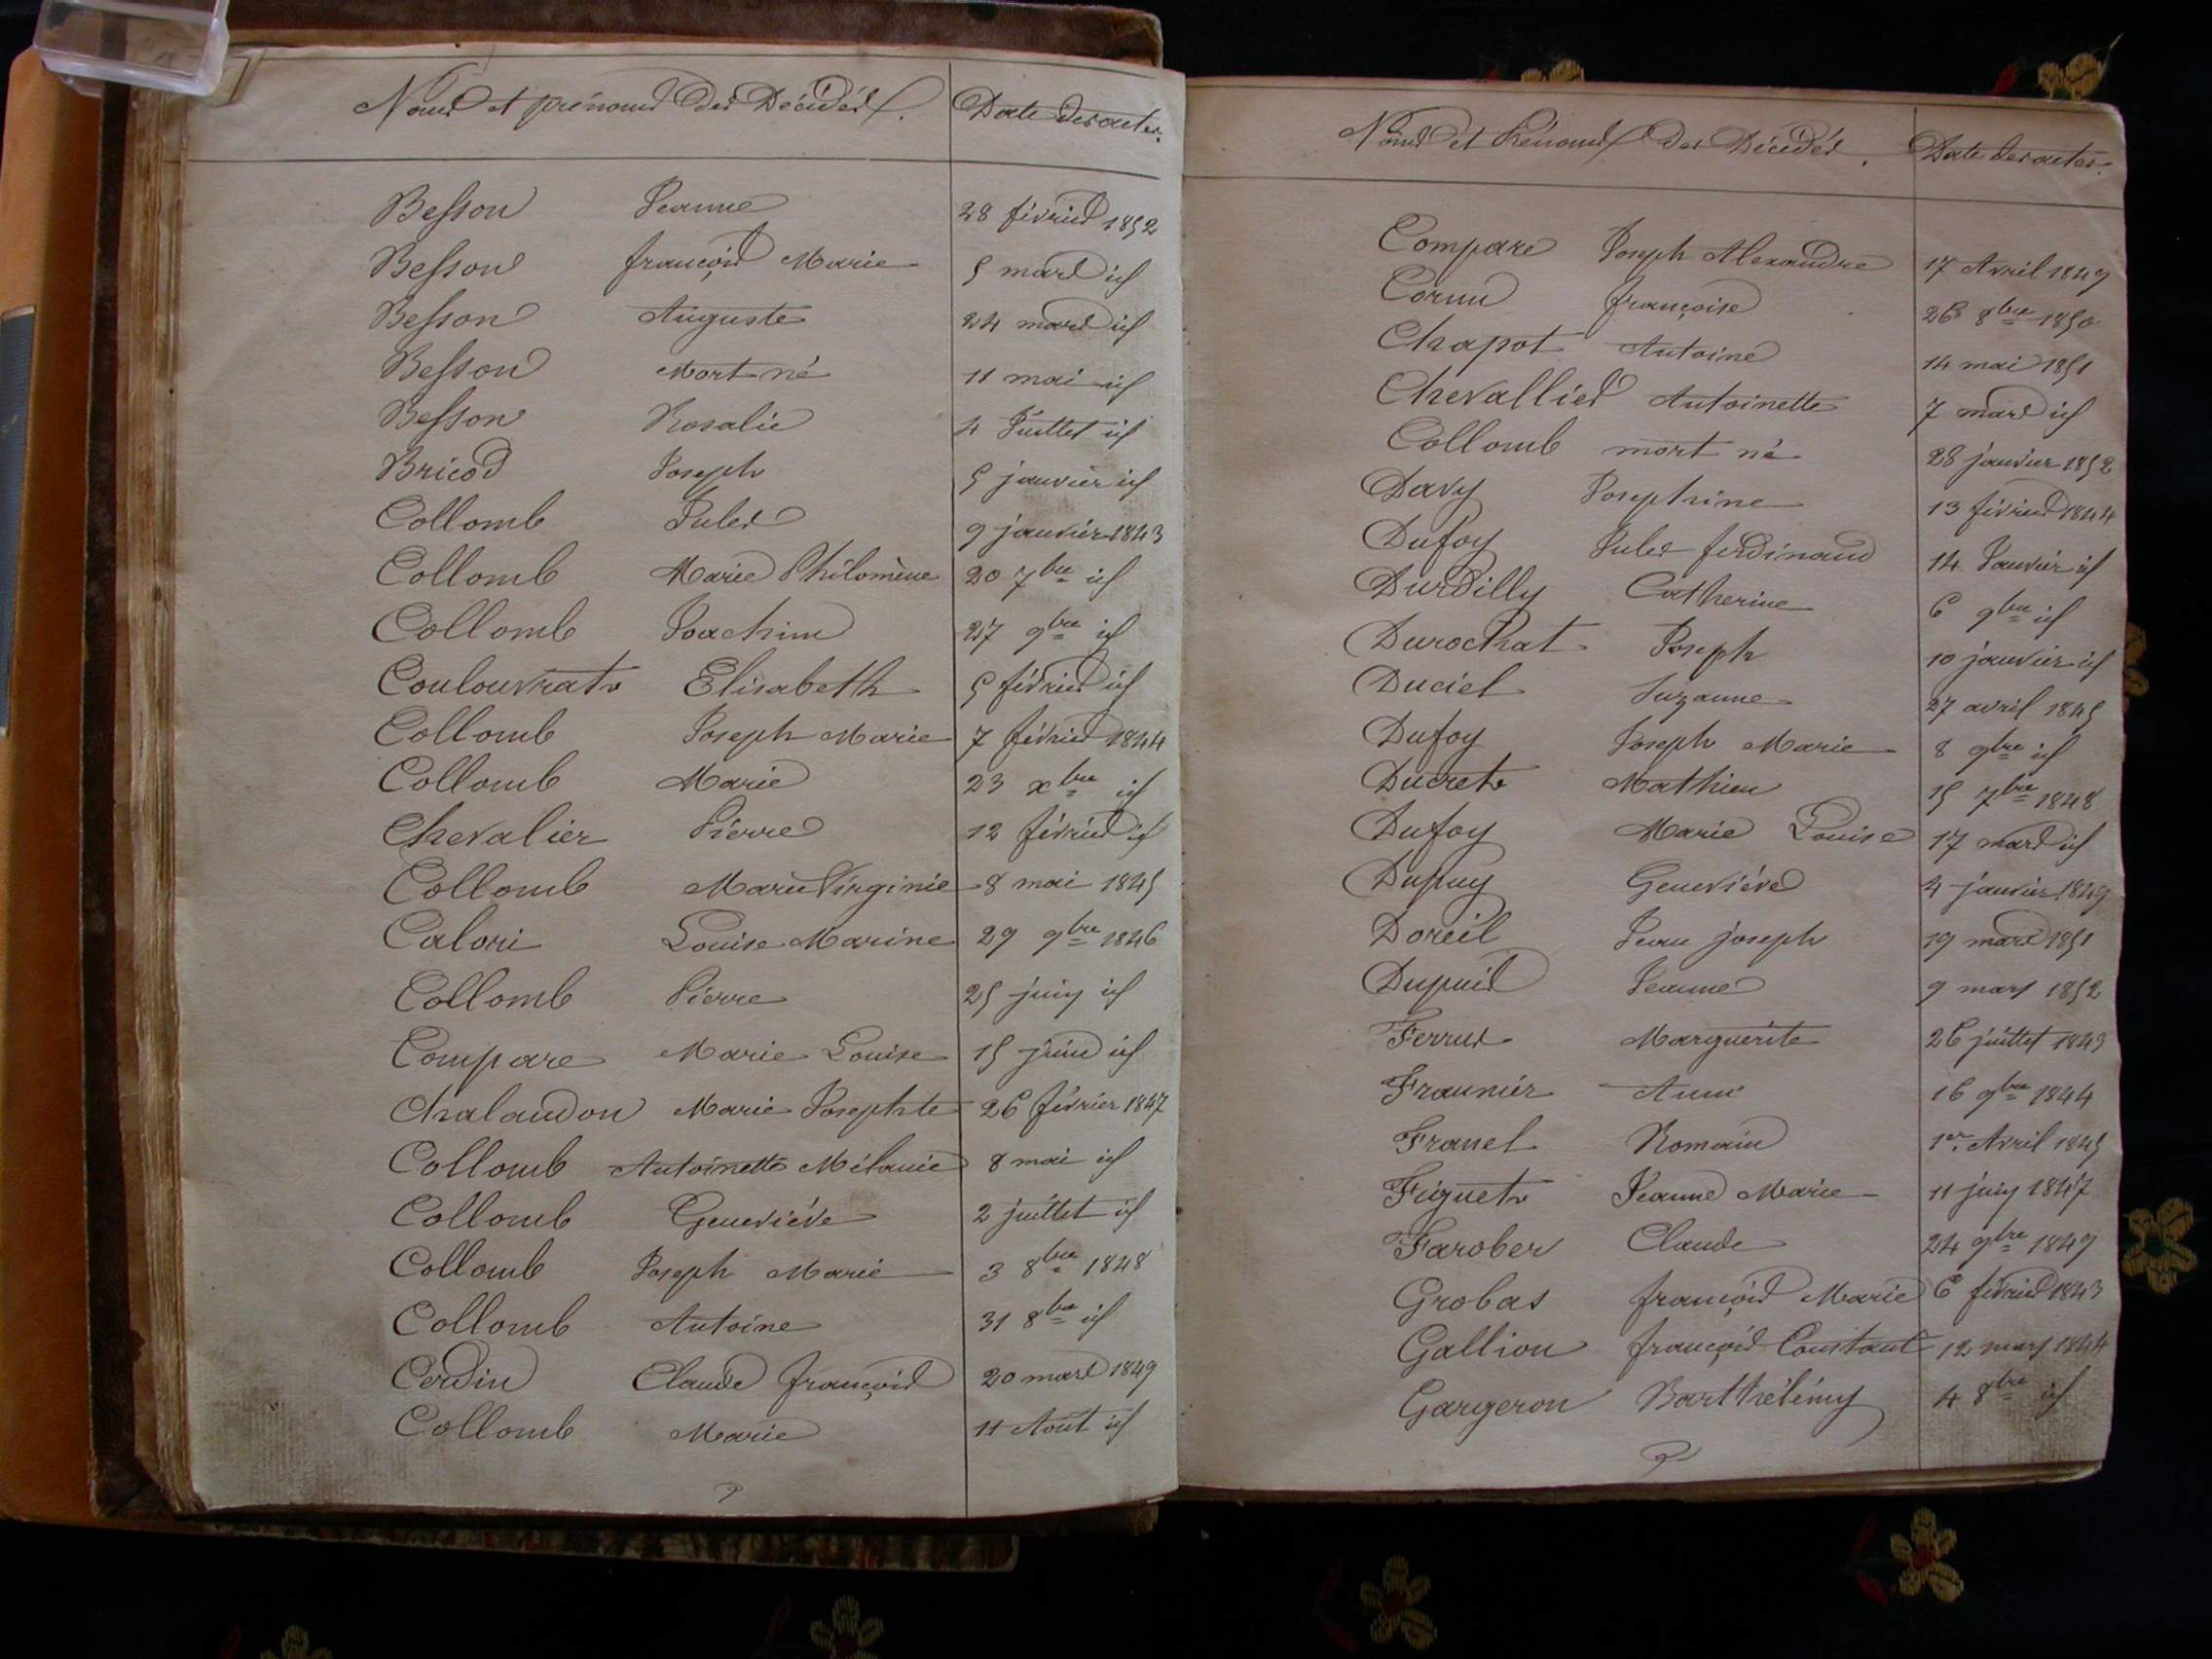 Noms et prénoms des Décédés. Date des actes.
Besson Jeanne 28 février 1852
Besson françois Marie 5 mars id
Besson Auguste 24 mars id
Besson Mort né 11 mai id
Besson Rosalie 4 Juillet id
Bricod Joseph 5 janvier id
Collomb Jules 9 janvier 1843
Collomb Marie Philomène 20 7bre id
Collomb Joachim 27 9bre id
Coulouvrat Elisabeth 5 février id
Collomb Joseph Marie 7 février 1844
Collomb Marie 23 xbre id
Chevalier Pierre 12 février id
Collomb Marie Virginie 8 mai 1845
Calori Louise Marine 29 9bre 1846
Collomb Pierre 25 juin id
Compare Marie Louise 15 juin id
Chalandon Marie Josephte 26 février 1847
Collomb Antoinette Mélanie 8 mai id
Collomb Geneviéve 2 juillet id
Collomb Joseph Marie 3 8bre 1848
Collomb Antoine 31 8bre id
Cerdin Claude françois 20 mars 1849
Collomb Marie 11 Aout id
Noms et Prénoms des Décédés. Date des actes.
Compare Joseph Alexandre 17 Avril 1849
Cornu françoise 26 8bre 1850
Chapot Antoine 14 mai 1851
Chevallier Antoinette 7 mars id
Collomb mort né 28 janvier 1852
Davy Josephine 13 février 1844
Dufoy Jules ferdinand 14 Janvier id
Durdilly Catherine 6 9bre id
Durochat Joseph 10 janvier id
Duciel Suzanne 27 avril 1845
Dufoy Joseph Marie 8 9bre id
Ducret Mathieu 15 7bre 1848
Dufoy Marie Louise 17 mars id
Dupuy Geneviéve 4 janvier 1849
Doreil Jean joseph 19 mars 1851
Dupuis Jeanne 9 mars 1852
Ferrus Marguerite 26 juillet 1843
Fraunier Anne 16 9bre 1844
Franel Romain 1er Avril 1845
Figuet Jeanne Marie 11 juin 1847
Farober Claude 24 9bre 1849
Grobas françois Marie 6 février 1843
Gallion françois Constant 12 mars 1844
Gargeron Barthélémy 4 8bre id